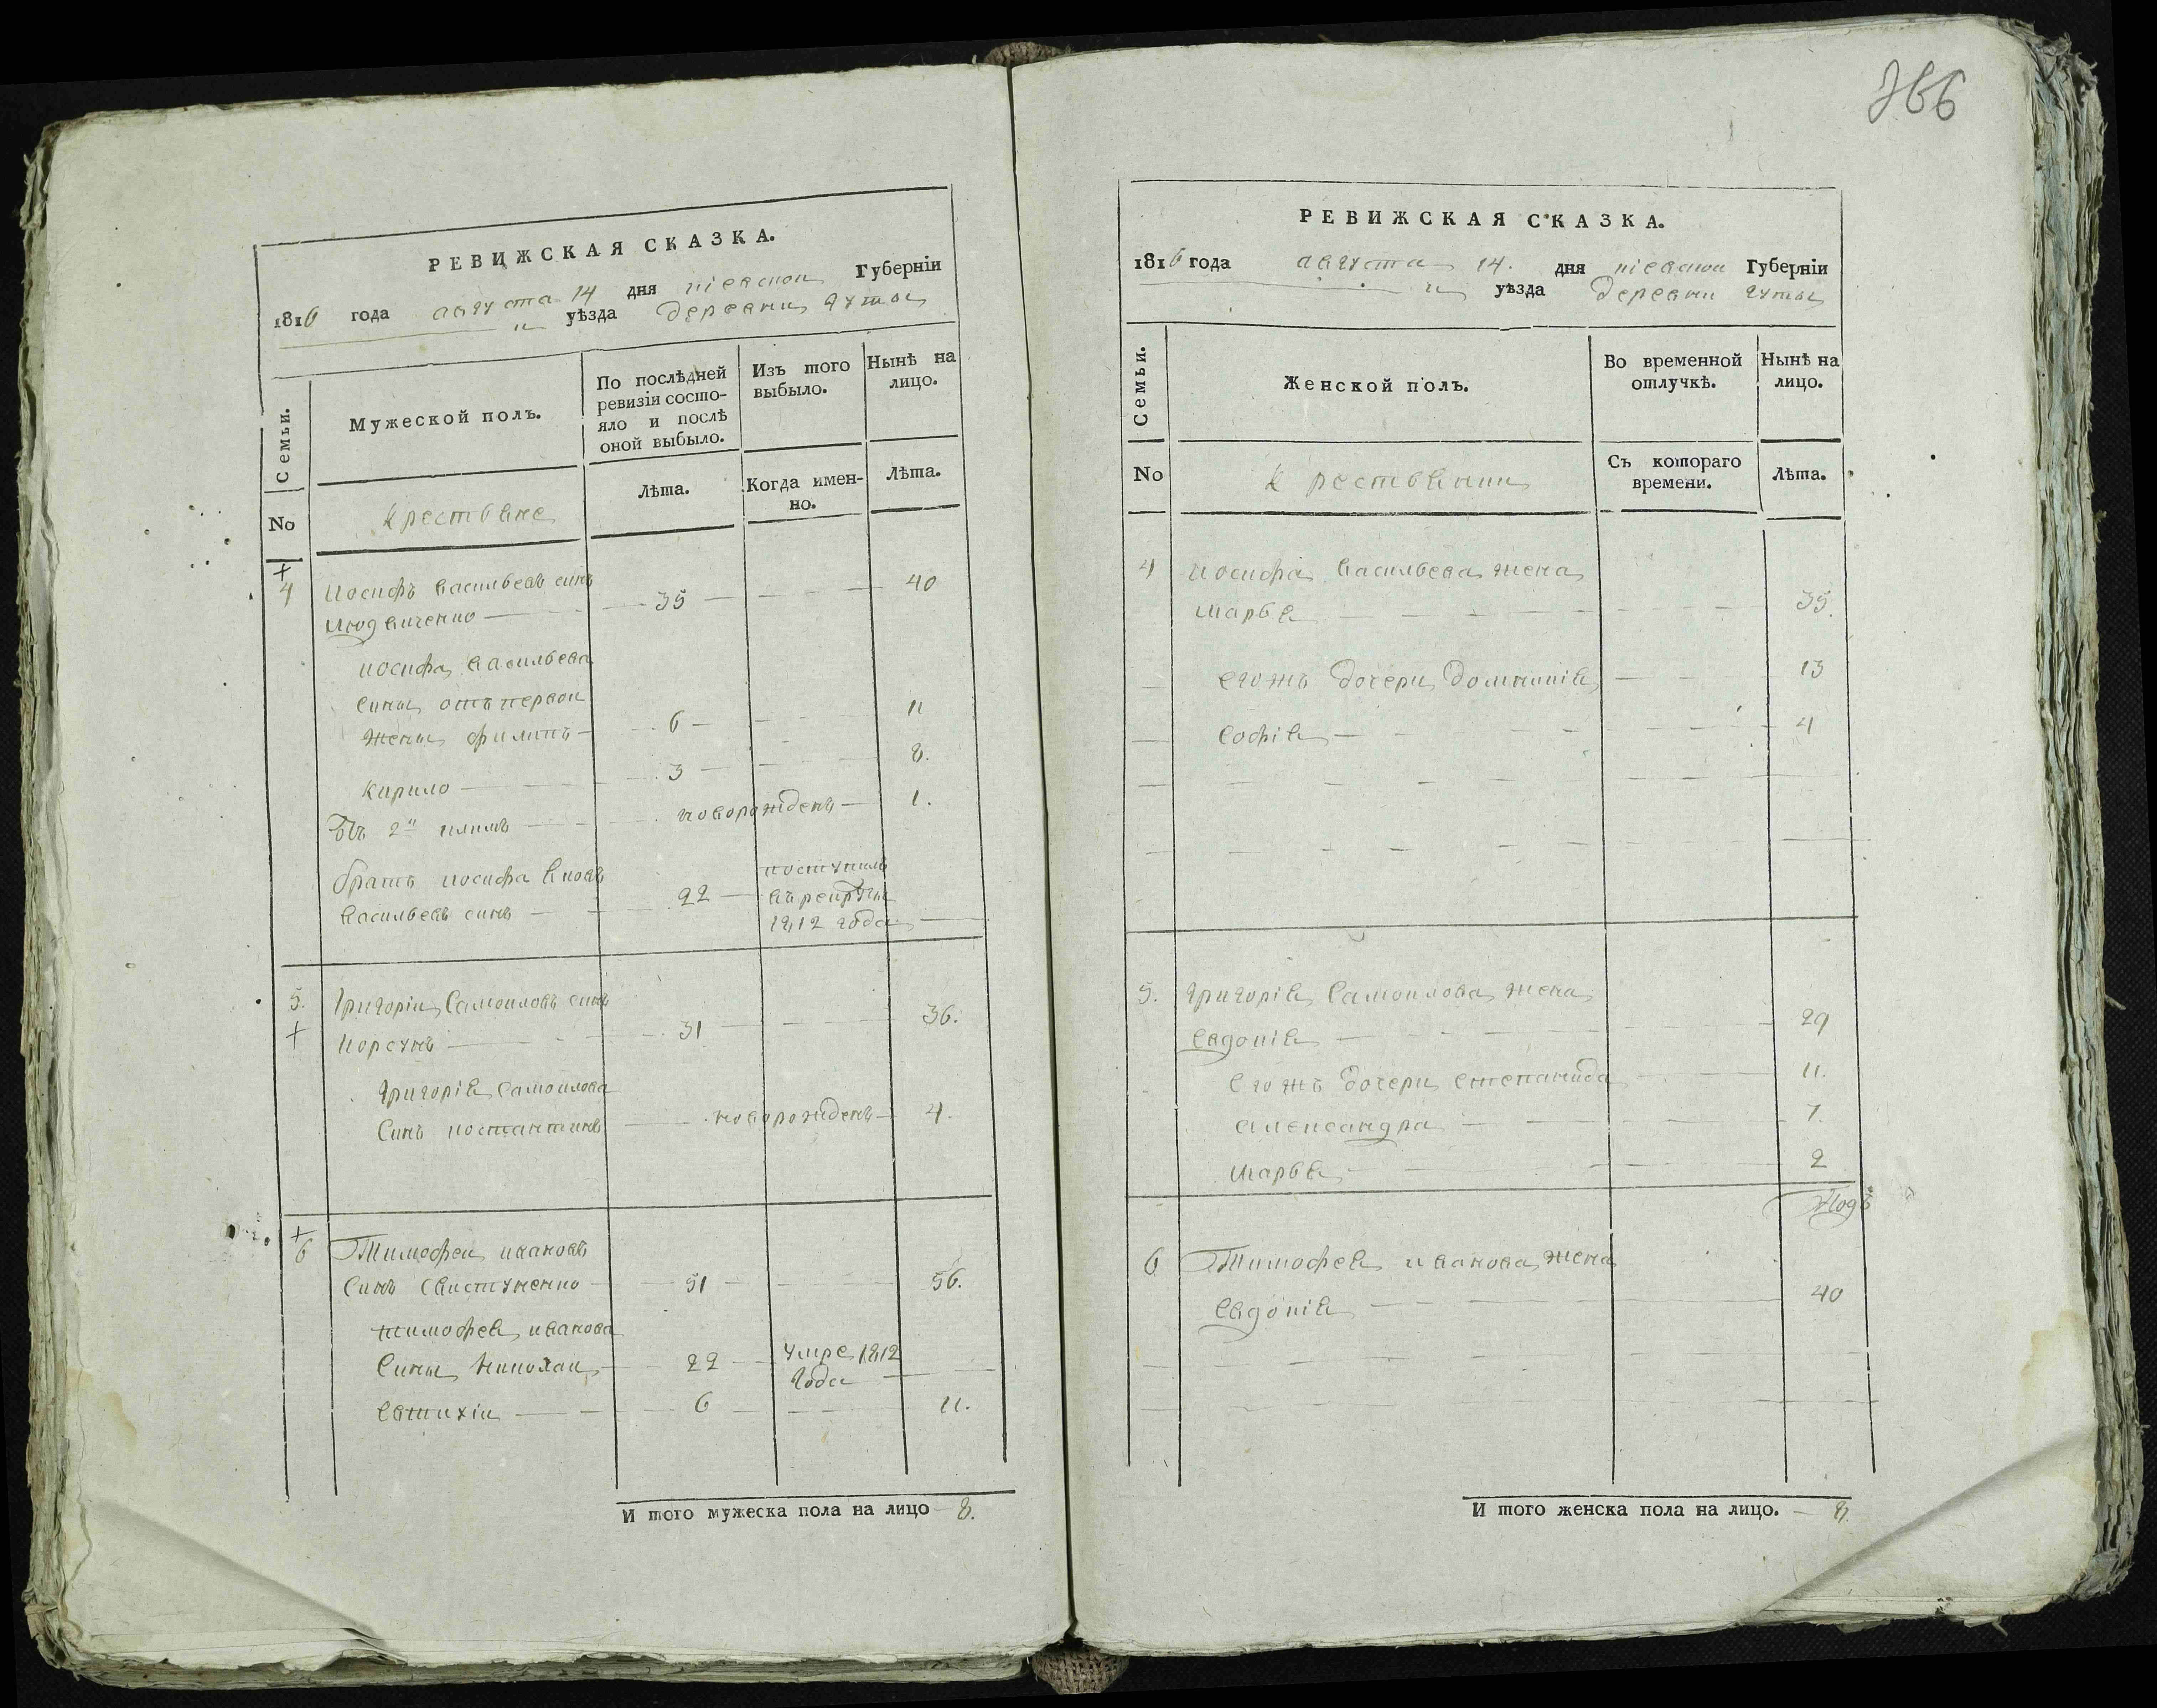 366
РЕВИЖСКАЯ СКАЗКА.
1816 года августа 14 дня кіевской Губерніи
уѣзда деревни гуты
Семьи.
No
Мужеской полъ.
крестьяне
По послѣдней
ревизіи состо-
яло и послѣ
оной выбыло.
Лѣта.
Изъ того
выбыло.
Когда имен-
но.
Нынѣ на
лицо.
Лѣта.
4 иосифъ васильевъ синъ
35 40
иосифа васильева
сины отъ первой
жены филипъ 6 11
кирило 3 8.
новорожденъ 1.
братъ иосифа яковъ
васильевъ синъ 22 поступилъ
въ рекруты
1812 года
5. Григорій самоиловъ синъ
корсунъ 31 36.
григорія самоилова
синъ костантинъ новорожденъ 4.
6 Тимофей ивановъ
синъ свистуненко 51 56.
тимофея иванова
сины николай 22 умре 1812
года
евтихій 6 11.
И того мужеска пола на лицо 8.
РЕВИЖСКАЯ СКАЗКА.
1816 года августа 14. дня кіевской Губерніи
уѣзда деревни гуты
Семьи.
No
Женской полъ.
крестьянки
Во временной
отлучкѣ.
Съ котораго
времени.
Нынѣ на
лицо.
Лѣта.
4 иосифа васильева жена
марья 35.
егожъ дочери домникія 13
софія 4
5. григорія самоилова жена
евдокія 29
егожъ дочери степанида 11.
александра 7.
марья 2
6 Тимофея иванова жена
евдокія 40
И того женска пола на лицо. 8.